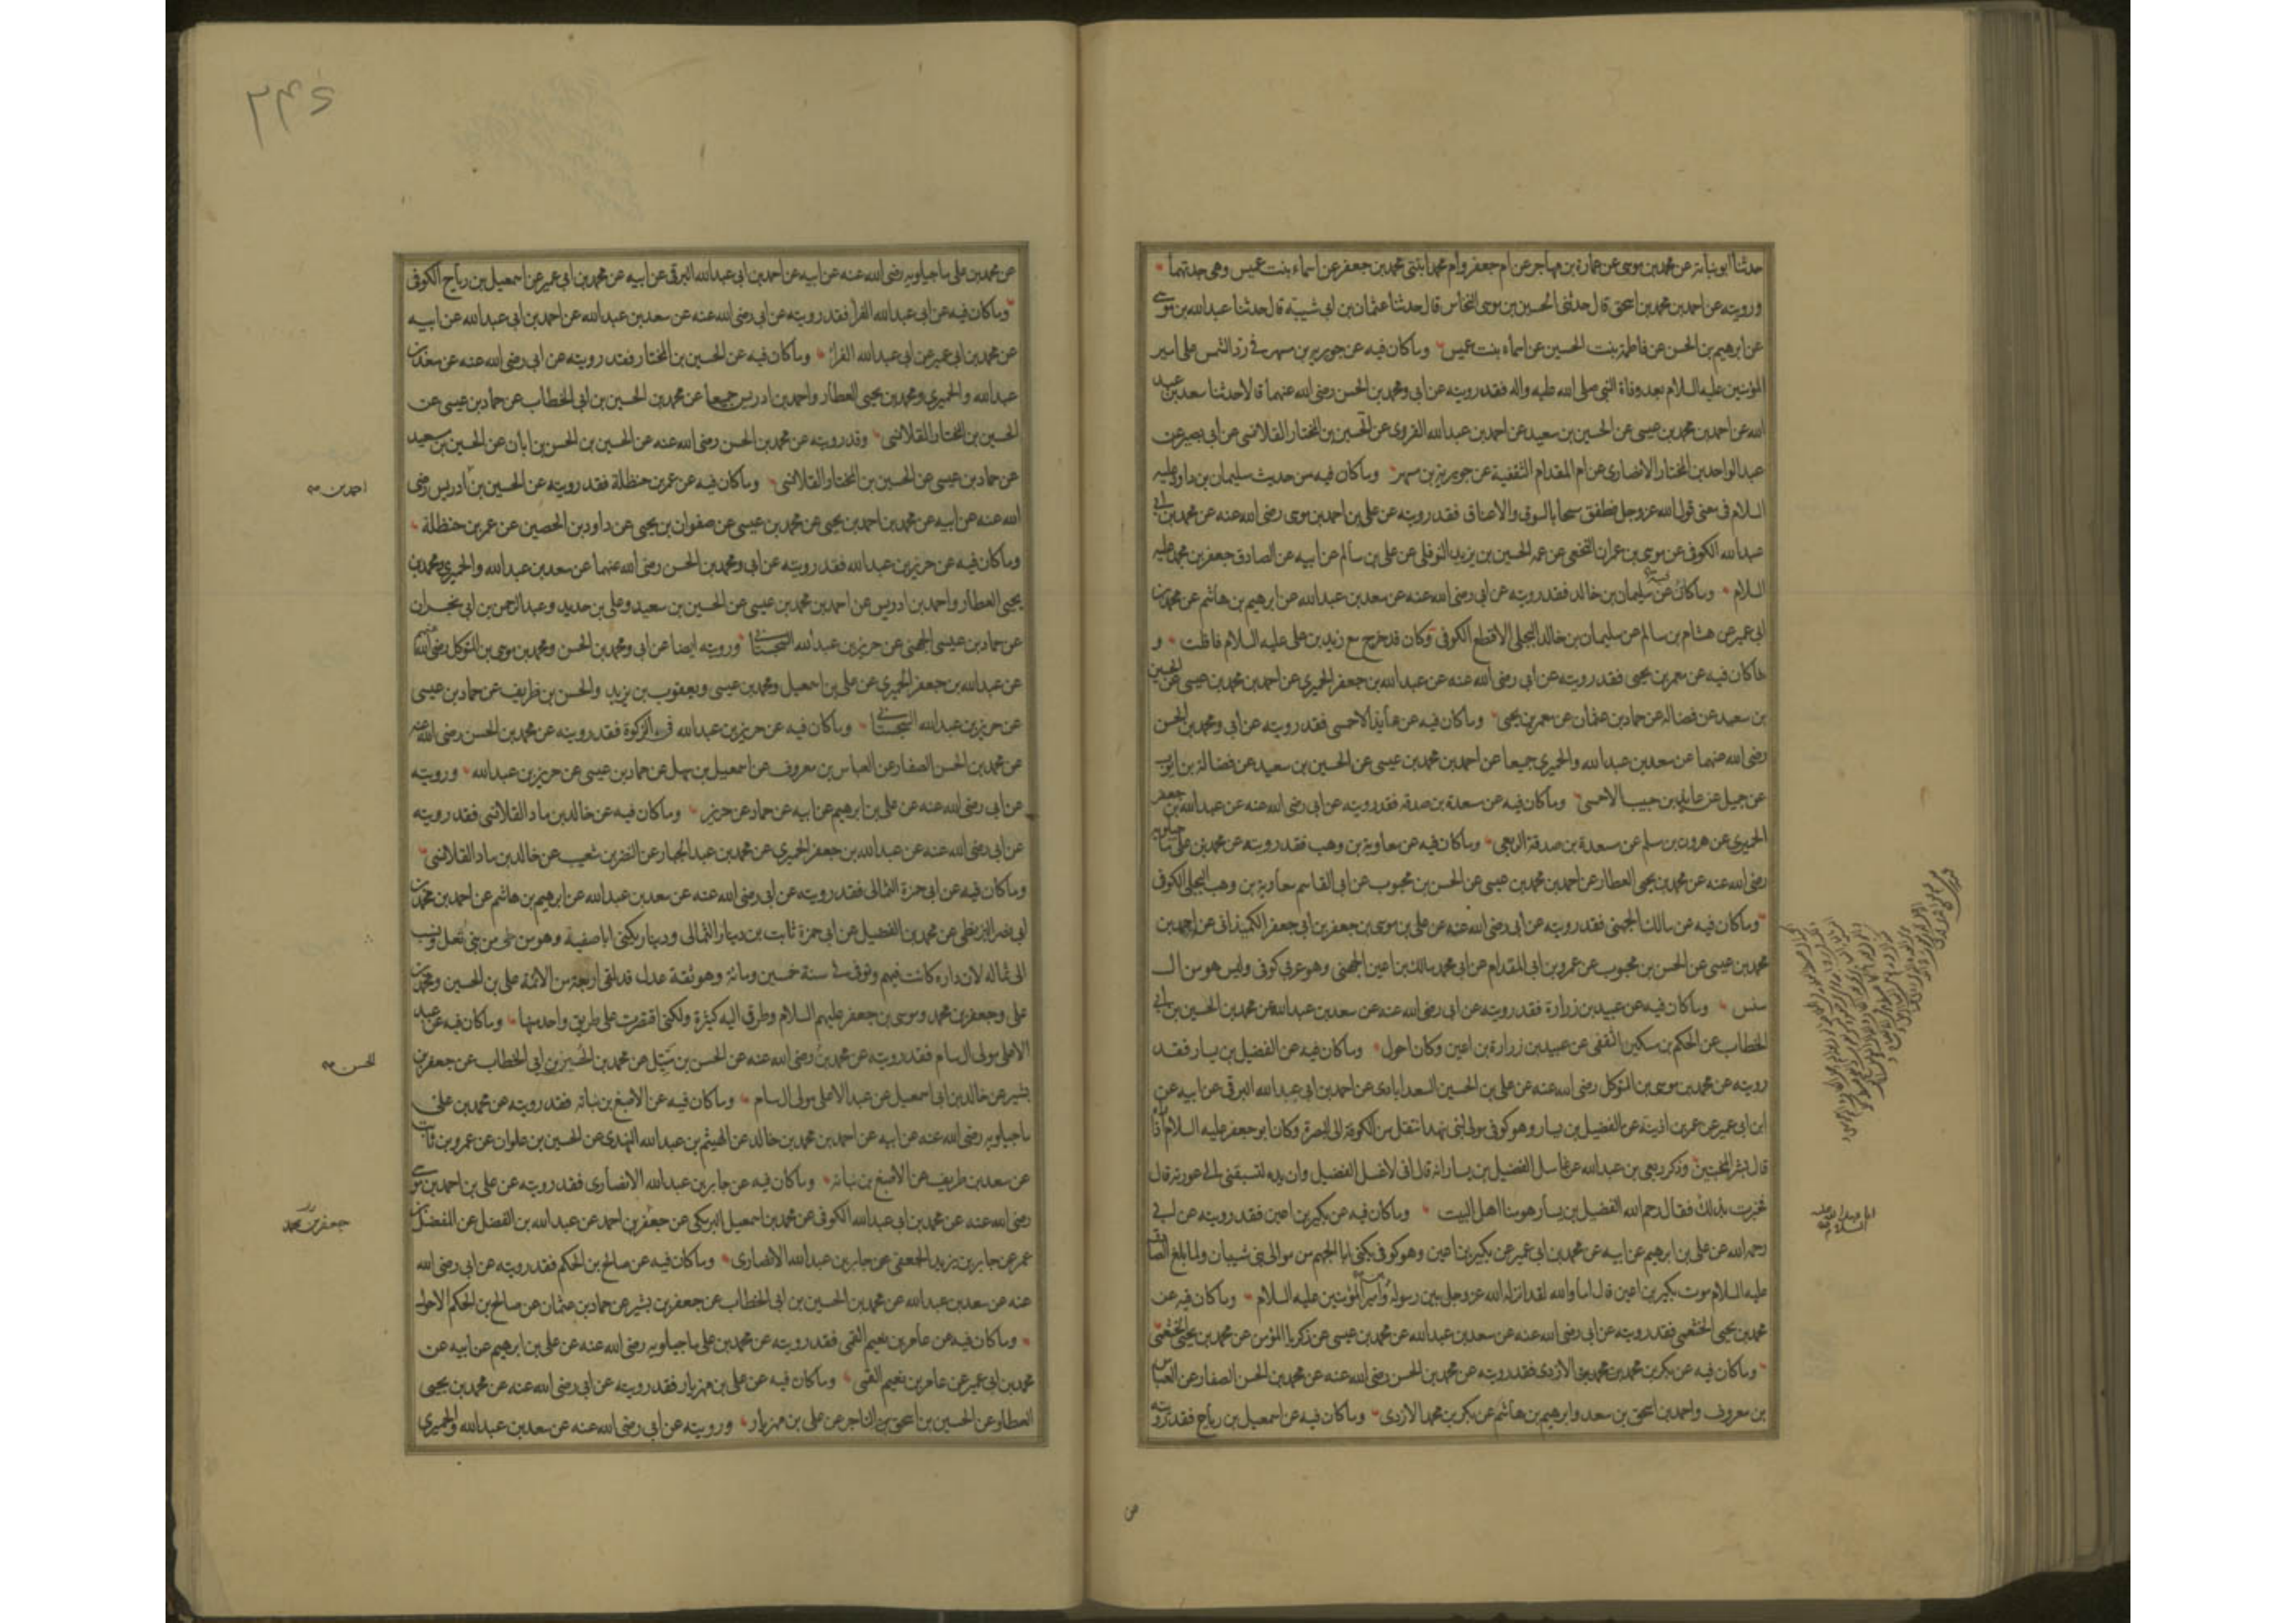 حدثنا ابونباته عن محمد بن موسى عن عمارة بن مهاجر عن ام جعفر وام محمد ابنتى محمد بن جعفر عن اسماء بنت عميس وهى جدتهما
ورويته عن احمد بن محمد بن اسحق قال حدثنى الحسين بن موسى النخاس قال حدثنا عثمان بن ابى شيبة قال حدثنا عبدالله بن موسى
عن ابرهيم بن الحسن عن فاطمة بنت الحسين عن اسماء بنت عميس وماكان فيه عن جويرية بن مسهر فى رد الشمس على امير
المؤمنين عليه السلام بعد وفاة النبى صلى الله عليه واله فقد رويته عن ابى ومحمد بن الحسن رضى الله عنهما قالا حدثنا سعد بن عبد
الله عن احمد بن محمد بن عيسى عن الحسين بن سعيد عن احمد بن عبدالله القروى عن الحسين بن المختار القلانسى عن ابى بصير عن
عبدالواحد بن المختار الانصارى عن ام المقدام الثقفية عن جويرية بن مسهر وماكان فيه من حديث سليمان بن داود عليه
السلام فى معنى قول الله عزوجل فطفق مسحا بالسوق والاعناق فقد رويته عن على بن احمد بن موسى رضى الله عنه عن محمد بن ابى
عبدالله الكوفى عن موسى بن عمران النخعى عن عمه الحسين بن يزيد النوفلى عن على بن سالم عن ابيه عن الصادق جعفر بن محمد عليه
السلام وماكان فيه عن سليمان بن خالد فقد رويته عن ابى رضى الله عنه عن سعد بن عبدالله عن ابرهيم بن هاشم عن محمد بن
ابى عمير عن هشام بن سالم عن سليمان بن خالد البجلى الاقطع الكوفى وكان قد خرج مع زيد بن على عليه السلام فافلت و
ماكان فيه عن معمر بن يحيى فقد رويته عن ابى رضى الله عنه عن عبدالله بن جعفر الحميرى عن احمد بن محمد بن عيسى عن الحسين
بن سعيد عن فضالة عن حماد بن عثمان عن معمر بن يحيى وماكان فيه عن عايذ الاحمسى فقد رويته عن ابى ومحمد بن الحسن
رضى الله عنهما عن سعد بن عبدالله والحميرى جميعا عن احمد بن محمد بن عيسى عن الحسين بن سعيد عن فضالة بن ايوب
عن جميل عن عايذ بن حبيب الاحمسى وماكان فيه عن مسعدة بن صدقة فقد رويته عن ابى رضى الله عنه عن عبدالله بن جعفر
الحميرى عن هرون بن مسلم عن مسعدة بن صدقة الربعى وماكان فيه عن معاوية بن وهب فقد رويته عن محمد بن على ماجيلويه
رضى الله عنه عن محمد بن يحيى العطار عن احمد بن محمد بن عيسى عن الحسن بن محبوب عن ابى القاسم معاوية بن وهب البجلى الكوفى
وماكان فيه عن مالك الجهنى فقد رويته عن ابى رضى الله عنه عن على بن موسى بن جعفر بن ابى جعفر الكميذانى عن احمد بن
محمد بن عيسى عن الحسن بن محبوب عن عمرو بن ابى المقدام عن ابى محمد مالك بن اعين الجهنى وهو عربى كوفى وليس هو من ال
سنس وماكان فيه عن عبيد بن زرارة فقد رويته عن ابى رضى الله عنه عن سعد بن عبدالله عن محمد بن الحسين بن ابى
الخطاب عن الحكم بن مسكين الثقفى عن عبيد بن زرارة بن اعين وكان احول وماكان فيه عن الفضيل بن يسار فقد
رويته عن محمد بن موسى بن المتوكل رضى الله عنه عن على بن الحسين السعدابادى عن احمد بن ابى عبدالله البرقى عن ابيه عن
ابن ابى عمير عن عمر بن اذينة عن الفضيل بن يسار وهو كوفى مولى لبنى نهد انتقل من الكوفة الى البصرة وكان ابوجعفر عليه السلام اذا
قال بشر المخبتين وذكر ربعى بن عبدالله عن غاسل الفضيل بن يسار انه قال انى لاغسل الفضيل وان يده لتسبقنى الى عورته قال
فخبرت بذلك فقال رحم الله الفضيل بن يسار هو منا اهل البيت وماكان فيه عن بكير بن اعين فقد رويته عن ابى
رحمه الله عن على بن ابرهيم عن ابيه عن محمد بن ابى عمير عن بكير بن اعين وهو كوفى يكنى ابا الجهم من موالى بنى شيبان ولما بلغ الصادق
عليه السلام موت بكير بن اعين قال اما والله لقد انزله الله عزوجل بين رسوله وامير المؤمنين عليه السلام وماكان فيه عن
محمد بن يحيى الخثعمى فقد رويته عن ابى رضى الله عنه عن سعد بن عبدالله عن محمد بن عيسى عن زكريا المؤمن عن محمد بن يحيى الخثعمى
وماكان فيه عن بكر بن محمد بن محمد الازدى فقد رويته عن محمد بن الحسن رضى الله عنه عن محمد بن الحسن الصفار عن العباس
بن معروف واحمد بن اسحق بن سعد وابرهيم بن هاشم عن بكر بن محمد الازدى وماكان فيه عن اسمعيل بن رباح فقد رويته
ابا عبدالله عليه السلام
عن
٢٤٤
عن محمد بن على ماجيلويه رضى الله عنه عن ابيه عن احمد بن ابى عبدالله البرقى عن ابيه عن محمد بن ابى عمير عن اسمعيل بن رباح الكوفى
وماكان فيه عن ابى عبدالله الفراء فقد رويته عن ابى رضى الله عنه عن سعد بن عبدالله عن احمد بن ابى عبدالله عن ابيه
عن محمد بن ابى عمير عن ابى عبدالله الفراء وماكان فيه عن الحسين بن المختار فقد رويته عن ابى رضى الله عنه عن سعد بن
عبدالله والحميرى ومحمد بن يحيى العطار واحمد بن ادريس جميعا عن محمد بن الحسين بن ابى الخطاب عن حماد بن عيسى عن
الحسين بن المختار القلانسى وقد رويته عن محمد بن الحسن رضى الله عنه عن الحسين بن الحسن بن ابان عن الحسين بن سعيد
عن حماد بن عيسى عن الحسين بن المختار القلانسى وماكان فيه عن عمر بن حنظلة فقد رويته عن الحسين بن ادريس رضى
احمد بن
الله عنه عن ابيه عن محمد بن احمد بن يحيى عن محمد بن عيسى عن صفوان بن يحيى عن داود بن الحصين عن عمر بن حنظلة
وماكان فيه عن حريز بن عبدالله فقد رويته عن ابى ومحمد بن الحسن رضى الله عنهما عن سعد بن عبدالله والحميرى ومحمد بن
يحيى العطار واحمد بن ادريس عن احمد بن محمد بن عيسى عن الحسين بن سعيد وعلى بن حديد وعبدالرحمن بن ابى نجران
عن حماد بن عيسى الجهنى عن حريز بن عبدالله السجستانى ورويته ايضا عن ابى ومحمد بن الحسن ومحمد بن موسى بن المتوكل رضى الله عنهم
عن عبدالله بن جعفر الحميرى عن على بن اسمعيل ومحمد بن عيسى ويعقوب بن يزيد والحسن بن ظريف عن حماد بن عيسى
عن حريز بن عبدالله السجستانى وماكان فيه عن حريز بن عبدالله فى الزكوة فقد رويته عن محمد بن الحسن رضى الله عنه
عن محمد بن الحسن الصفار عن العباس بن معروف عن اسمعيل بن سهل عن حماد بن عيسى عن حريز بن عبدالله ورويته
عن ابى رضى الله عنه عن على بن ابرهيم عن ابيه عن حماد عن حريز وماكان فيه عن خالد بن ماد القلانسى فقد رويته
عن ابى رضى الله عنه عن عبدالله بن جعفر الحميرى عن محمد بن عبدالجبار عن النضر بن شعيب عن خالد بن ماد القلانسى
وماكان فيه عن ابى حمزة الثمالى فقد رويته عن ابى رضى الله عنه عن سعد بن عبدالله عن ابرهيم بن هاشم عن احمد بن محمد بن
ابى نصر البزنطى عن محمد بن الفضيل عن ابى حمزة ثابت بن دينار الثمالى ودينار يكنى ابا صفية وهو من طى من بنى ثعل ونسب
الى ثماله لان داره كانت فيهم وتوفى فى سنة خمسين ومائة وهو ثقة عدل قد لقى اربعة من الائمة على بن الحسين ومحمد بن
على وجعفر بن محمد وموسى بن جعفر عليهم السلام وطرقى اليه كثيرة ولكنى اقتصرت على طريق واحد منها وماكان فيه عن عبد
الاعلى مولى ال سام فقد رويته عن محمد بن رضى الله عنه عن الحسن بن متيل عن محمد بن الحسين بن ابى الخطاب عن جعفر بن
الحسن
بشير عن خالد بن ابى اسمعيل عن عبدالاعلى مولى ال سام وماكان فيه عن الاصبغ بن نباتة فقد رويته عن محمد بن على
ماجيلويه رضى الله عنه عن ابيه عن احمد بن محمد بن خالد عن الهيثم بن عبدالله النهدى عن الحسين بن علوان عن عمرو بن ثابت
عن سعد بن طريف عن الاصبغ بن نباتة وماكان فيه عن جابر بن عبدالله الانصارى فقد رويته عن على بن احمد بن موسى
رضى الله عنه عن محمد بن ابى عبدالله الكوفى عن محمد بن اسمعيل البرمكى عن جعفر بن احمد عن عبدالله بن الفضل عن المفضل بن
جعفر بن محمد
عمر عن جابر بن يزيد الجعفى عن جابر بن عبدالله الانصارى وماكان فيه عن صالح بن الحكم فقد رويته عن ابى رضى الله
عنه عن سعد بن عبدالله عن محمد بن الحسين بن ابى الخطاب عن جعفر بن بشير عن حماد بن عثمان عن صالح بن الحكم الاحول
وماكان فيه عن عامر بن نعيم القمى فقد رويته عن محمد بن على ماجيلويه رضى الله عنه عن على بن ابرهيم عن ابيه عن
محمد بن ابى عمير عن عامر بن نعيم القمى وماكان فيه عن على بن مهزيار فقد رويته عن ابى رضى الله عنه عن محمد بن يحيى
العطار عن الحسين بن اسحق بن التاجر عن على بن مهزيار ورويته عن ابى رضى الله عنه عن سعد بن عبدالله والحميرى